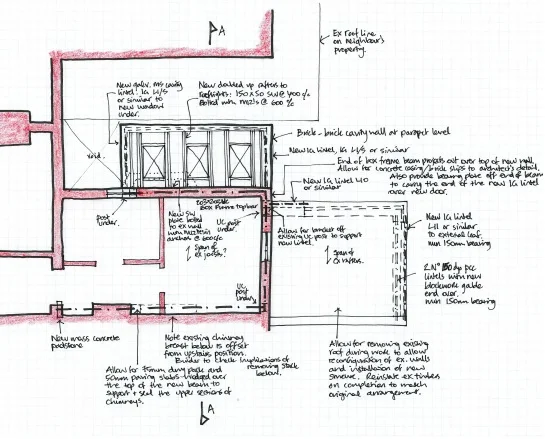 A
Ex roof line
on neighbour's
property.
New galv. ms cavity
lintel. IG L1/S
or similar to
new window
under.
New doubled up rafters to
rooflights - 150x50 SW @ 400 c/c
Bolted with M12's @ 600 c/c
Brick - brick cavity wall at parapet level
New IG lintel, IG L1/S or similar
End of box frame beam projects out over top of new wall.
Allow for cavity casing/brick slips to architect's detail.
Also provide bearing plate off end of beam
to carry the end of the new IG lintel
over new door.
New IG lintel L10
or similar
void.
post
under.
Box Frame top bar
New SW
plate bolted
to ex wall
with M12 resin
anchors @ 600 c/c
Span of
ex joists?
UC post
under.
Allow for bracket off
existing UC post to support
new lintel.
Span of
ex rafters.
New IG lintel
L11 or similar
to external leaf.
min 150mm bearing
2 No 150 dp pcc
lintels with new
blockwork gable
end over.
min 150mm bearing
UC
post
under
New mass concrete
padstone
Note existing chimney
breast below is offset
from upstairs position.
Builder to check implications of
removing stack
below.
Allow for 75mm dury pack and
50mm paving slabs bridged over
the top of the new beam to
support + seal the upper sections of
chimneys.
Allow for removing existing
roof during work to allow
reconfiguration of ex. walls
and installation of new
structure. Reinstate ex timbers
on completion to match
original arrangement.
A